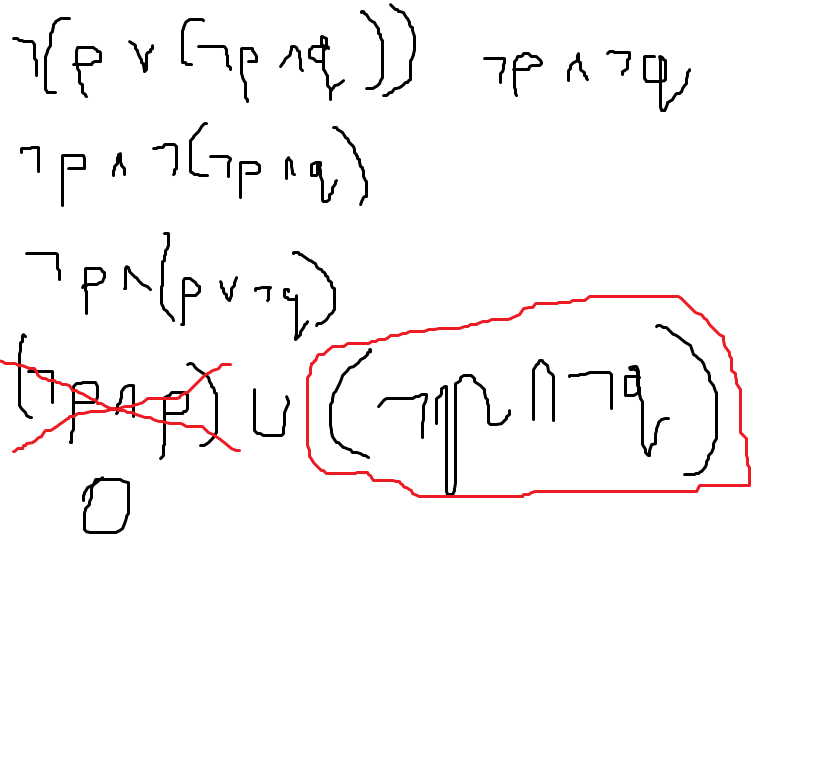 ¬(p ∨ (¬p ∧q)) ¬p ∧ ¬q
¬p ∧ ¬(¬p ∧q)
¬p∧(p ∨ ¬q)
(¬p∧p) ∪ (¬p ∩ ¬q)
0